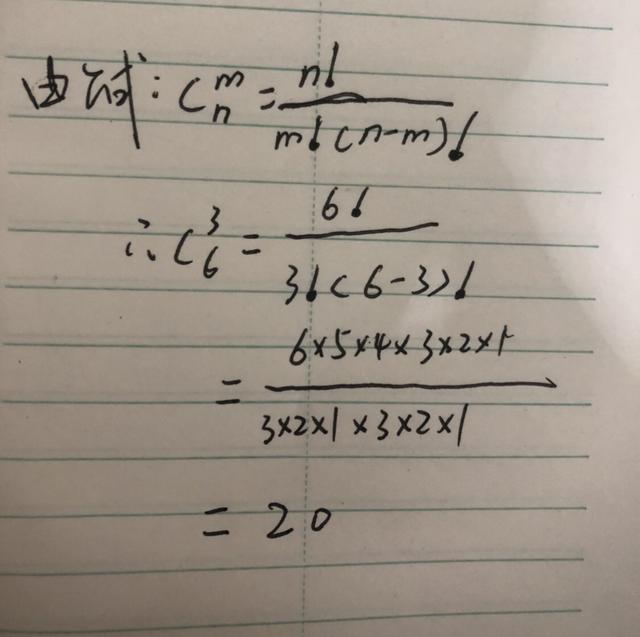 由 : C_n^m = n! / m!(n-m)!
∴ C_6^3 = 6! / 3!(6-3)!
= 6×5×4×3×2×1 / 3×2×1×3×2×1
= 20